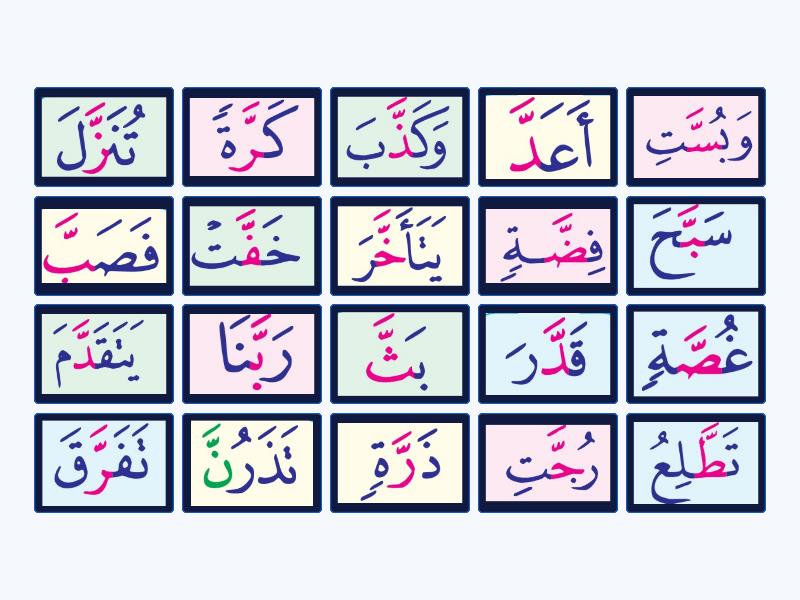 وَبُسَّتِ أَعَدَّ وَكَذَّبَ كَرَّةً تُنَزَّلَ
سَبَّحَ فِضَّةٍ يَتَأَخَّرَ خَفَّتْ فَصَبَّ
غُصَّةٍ قَدَّرَ بَثَّ رَبَّنَا يَتَقَدَّمَ
تَطَّلِعُ رُجَّتِ ذَرَّةٍ تَذَرُنَّ تَفَرَّقَ